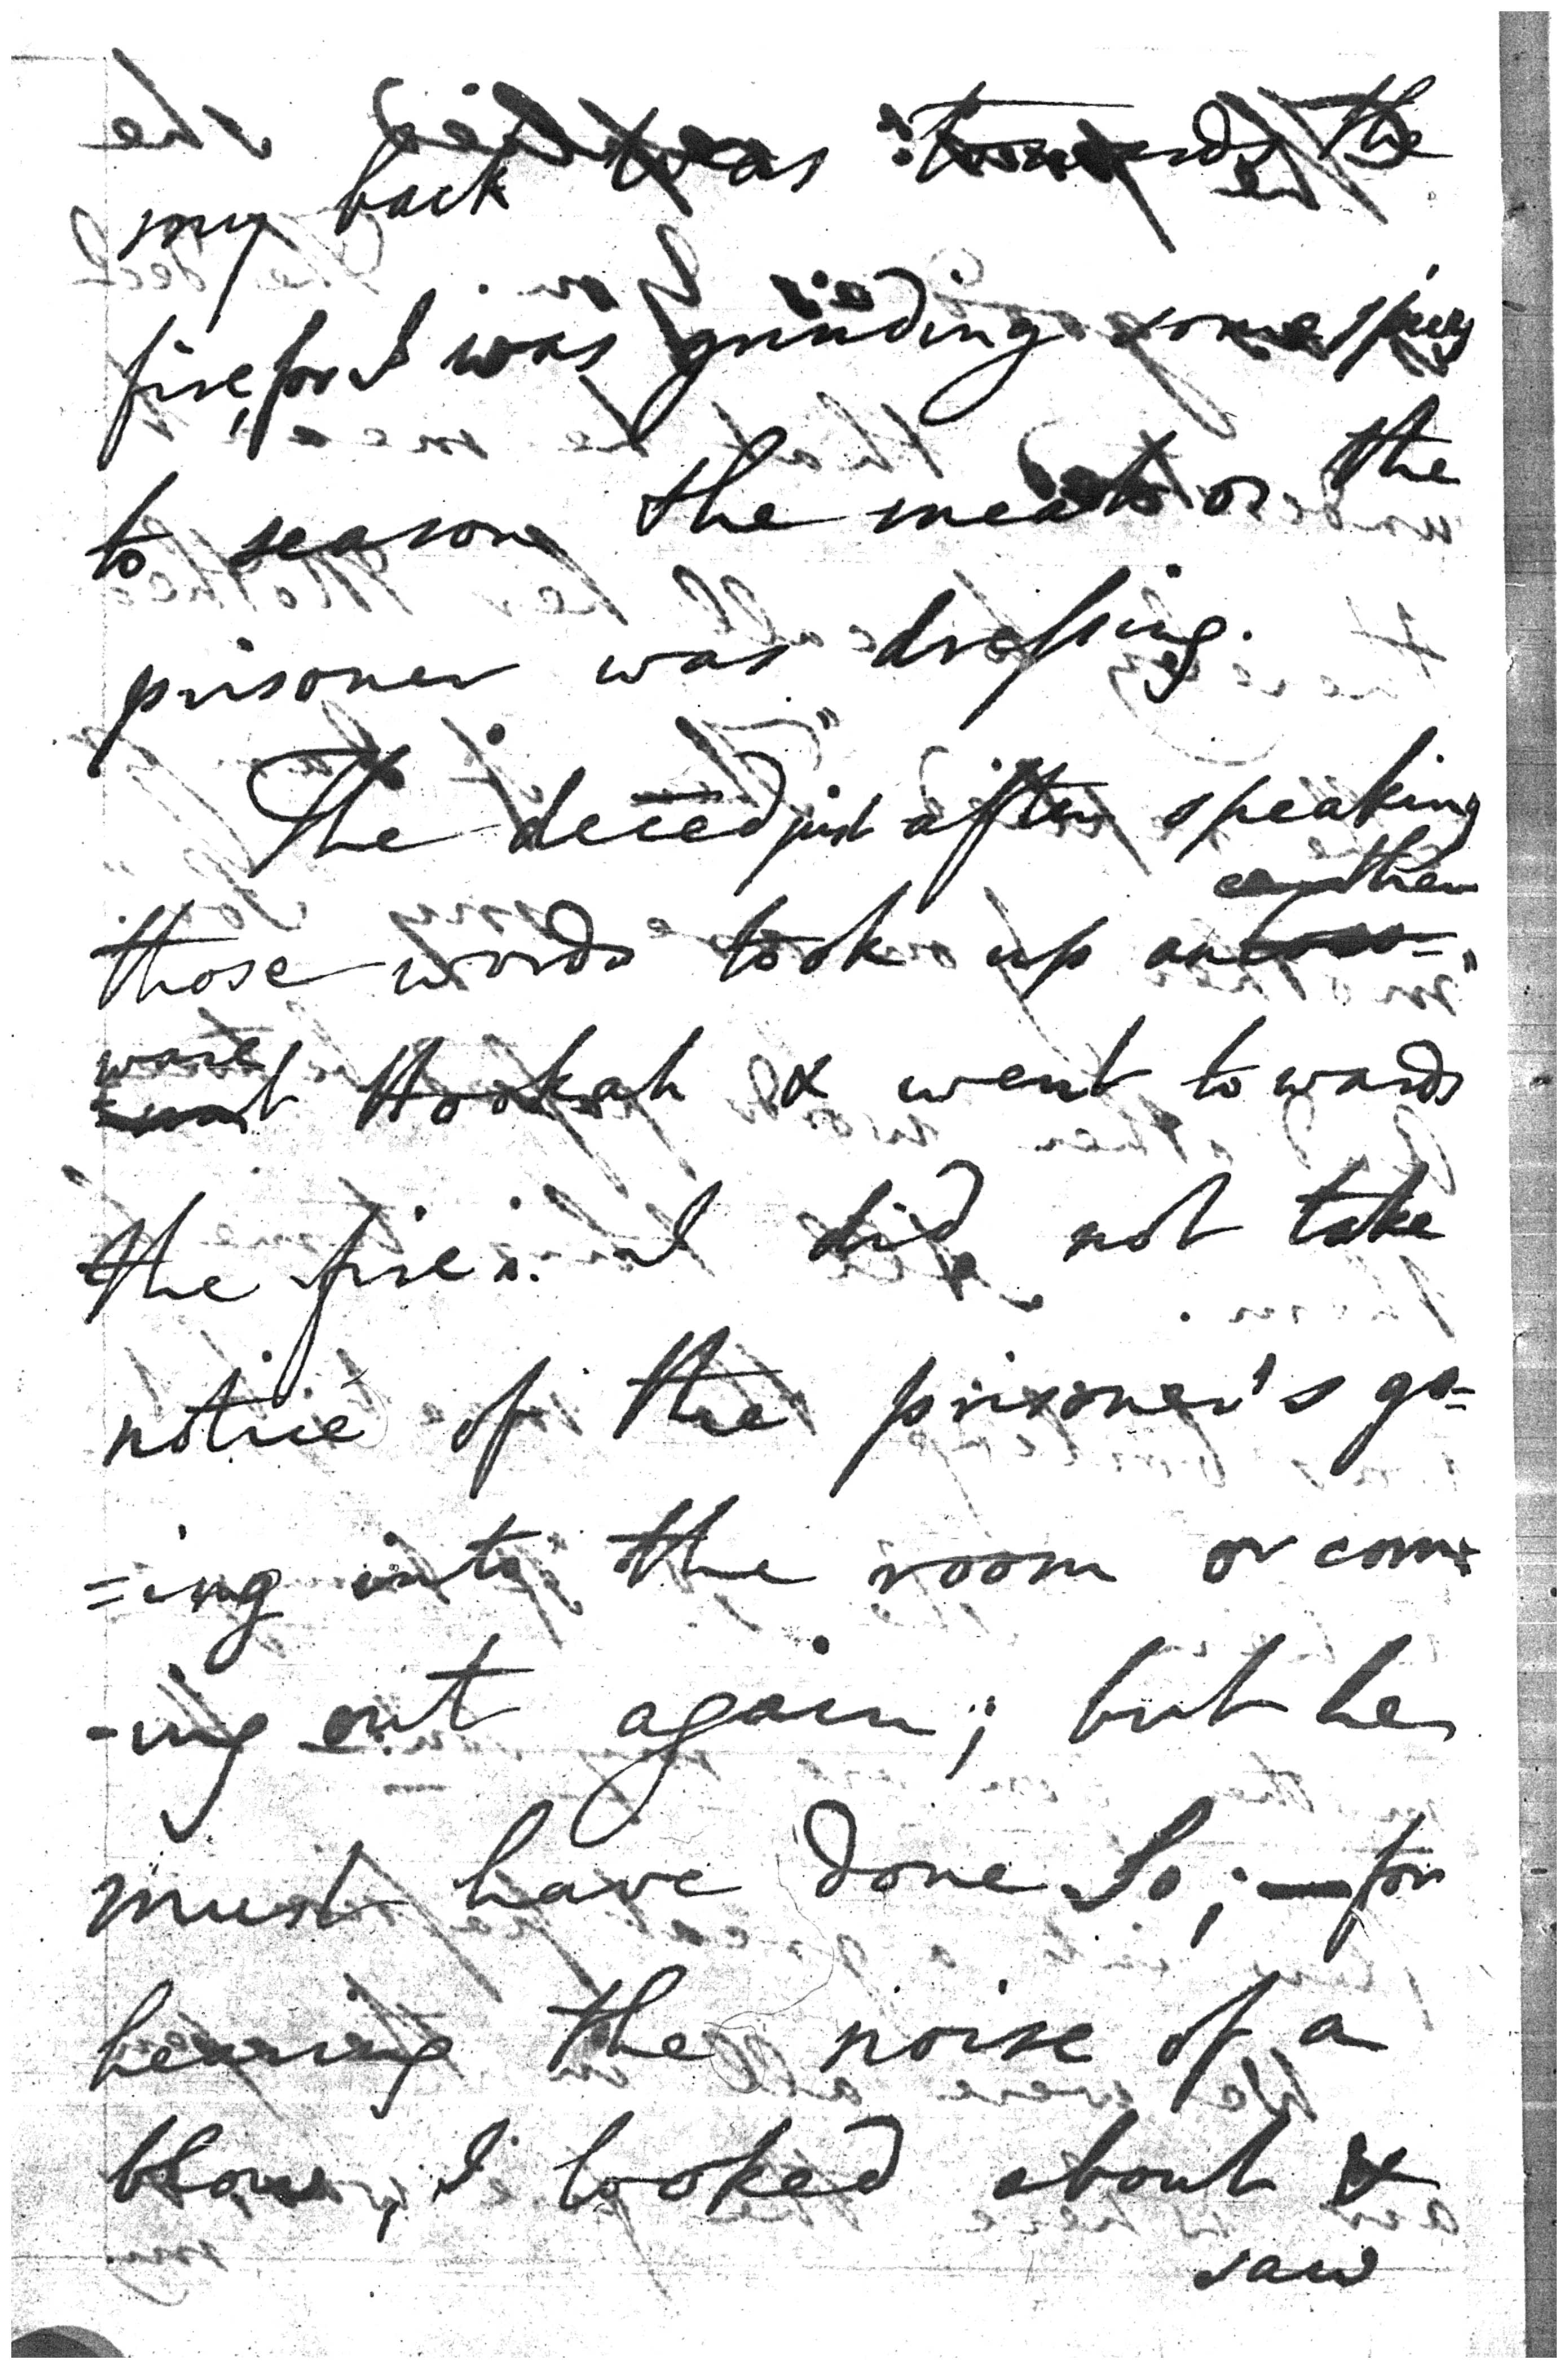 my back was towards the
fire, for I was grinding some spices
to season the meats or the
prisoner was dressing.
The deced just after speaking
those words took up an earthen
ware Hookah & went towards
the fire. I did not take
notice of the prisoner's go=
=ing into the room or com=
-ing out again; but he
must have done so; — for
hearing the noise of a
blow, I looked about &
saw